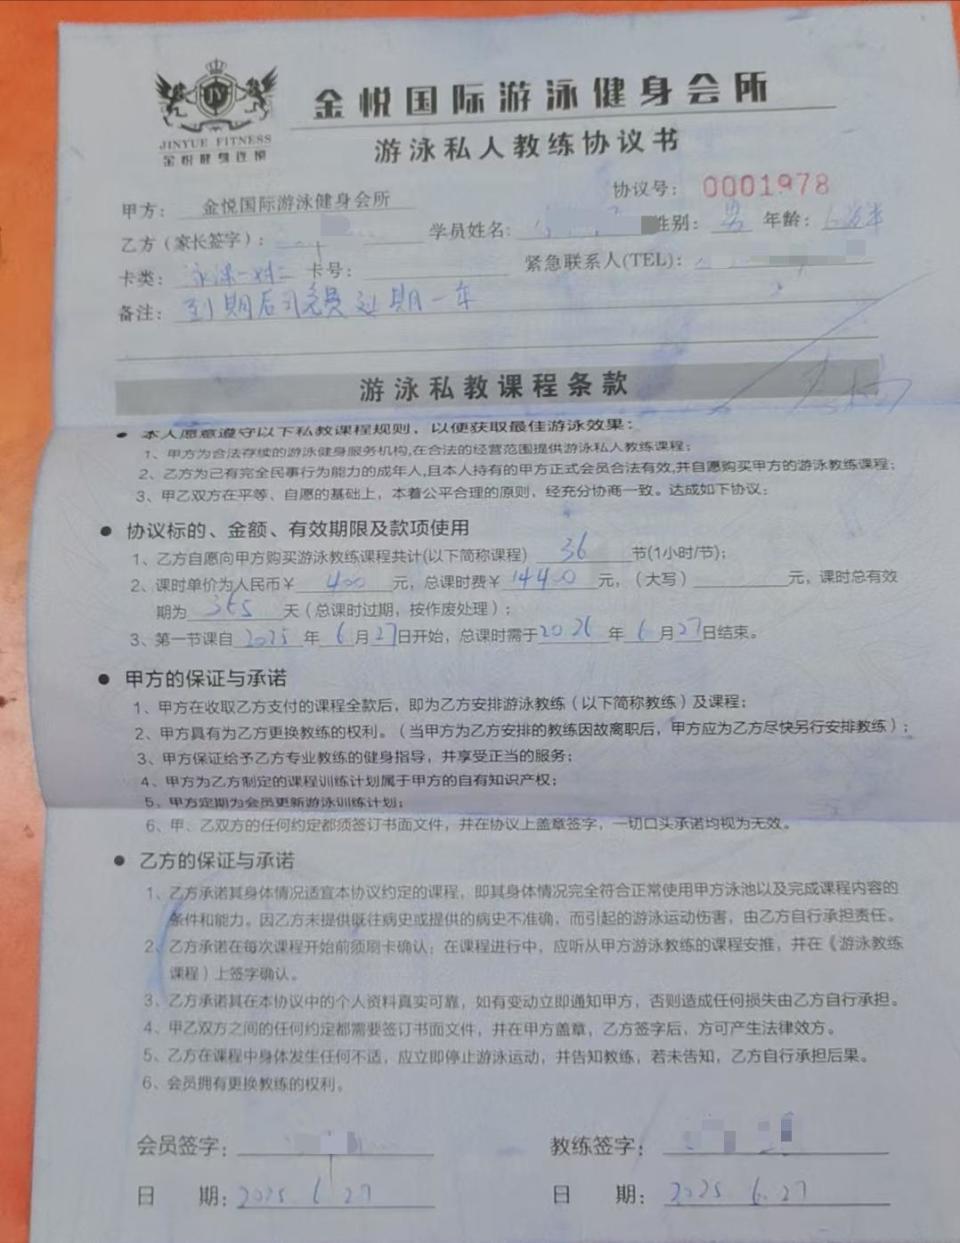 JINYUE FITNESS
金悦健身连锁
金悦国际游泳健身会所
游泳私人教练协议书
协议号： 0001978
甲方： 金悦国际游泳健身会所
乙方（家长签字）： 学员姓名： 性别： 男 年龄：
卡类： 泳课一对二 卡号： 紧急联系人(TEL)：
备注： 到期后可免费延期一年
游泳私教课程条款
● 本人愿意遵守以下私教课程规则，以便获取最佳游泳效果：
1、甲方为合法存续的游泳健身服务机构,在合法的经营范围提供游泳私人教练课程；
2、乙方为已有完全民事行为能力的成年人,且本人持有的甲方正式会员合法有效,并自愿购买甲方的游泳教练课程；
3、甲乙双方在平等、自愿的基础上，本着公平合理的原则，经充分协商一致。达成如下协议：
● 协议标的、金额、有效期限及款项使用
1、乙方自愿向甲方购买游泳教练课程共计(以下简称课程) 36 节(1小时/节)；
2、课时单价为人民币￥ 400 元，总课时费￥ 14400 元，（大写） 元，课时总有效
期为 365 天（总课时过期，按作废处理）；
3、第一节课自 2025 年 6 月 27 日开始，总课时需于 2026 年 6 月 27 日结束。
● 甲方的保证与承诺
1、甲方在收取乙方支付的课程全款后，即为乙方安排游泳教练（以下简称教练）及课程；
2、甲方具有为乙方更换教练的权利。（当甲方为乙方安排的教练因故离职后，甲方应为乙方尽快另行安排教练）；
3、甲方保证给予乙方专业教练的健身指导，并享受正当的服务；
4、甲方为乙方制定的课程训练计划属于甲方的自有知识产权；
5、甲方定期为会员更新游泳训练计划；
6、甲、乙双方的任何约定都须签订书面文件，并在协议上盖章签字，一切口头承诺均视为无效。
● 乙方的保证与承诺
1、乙方承诺其身体情况适宜本协议约定的课程，即其身体情况完全符合正常使用甲方泳池以及完成课程内容的
条件和能力。因乙方未提供既往病史或提供的病史不准确，而引起的游泳运动伤害，由乙方自行承担责任。
2、乙方承诺在每次课程开始前须刷卡确认；在课程进行中，应听从甲方游泳教练的课程安推，并在《游泳教练
课程）上签字确认。
3、乙方承诺其在本协议中的个人资料真实可靠，如有变动立即通知甲方，否则造成任何损失由乙方自行承担。
4、甲乙双方之间的任何约定都需要签订书面文件，并在甲方盖章，乙方签字后，方可产生法律效方。
5、乙方在课程中身体发生任何不适，应立即停止游泳运动，并告知教练，若未告知，乙方自行承担后果。
6、会员拥有更换教练的权利。
会员签字： 教练签字：
日 期：2025 6 27 日 期： 2025 6. 27